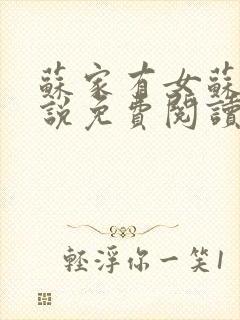 蘇家有女蘇
說免費閱讀
輕浮你一笑1